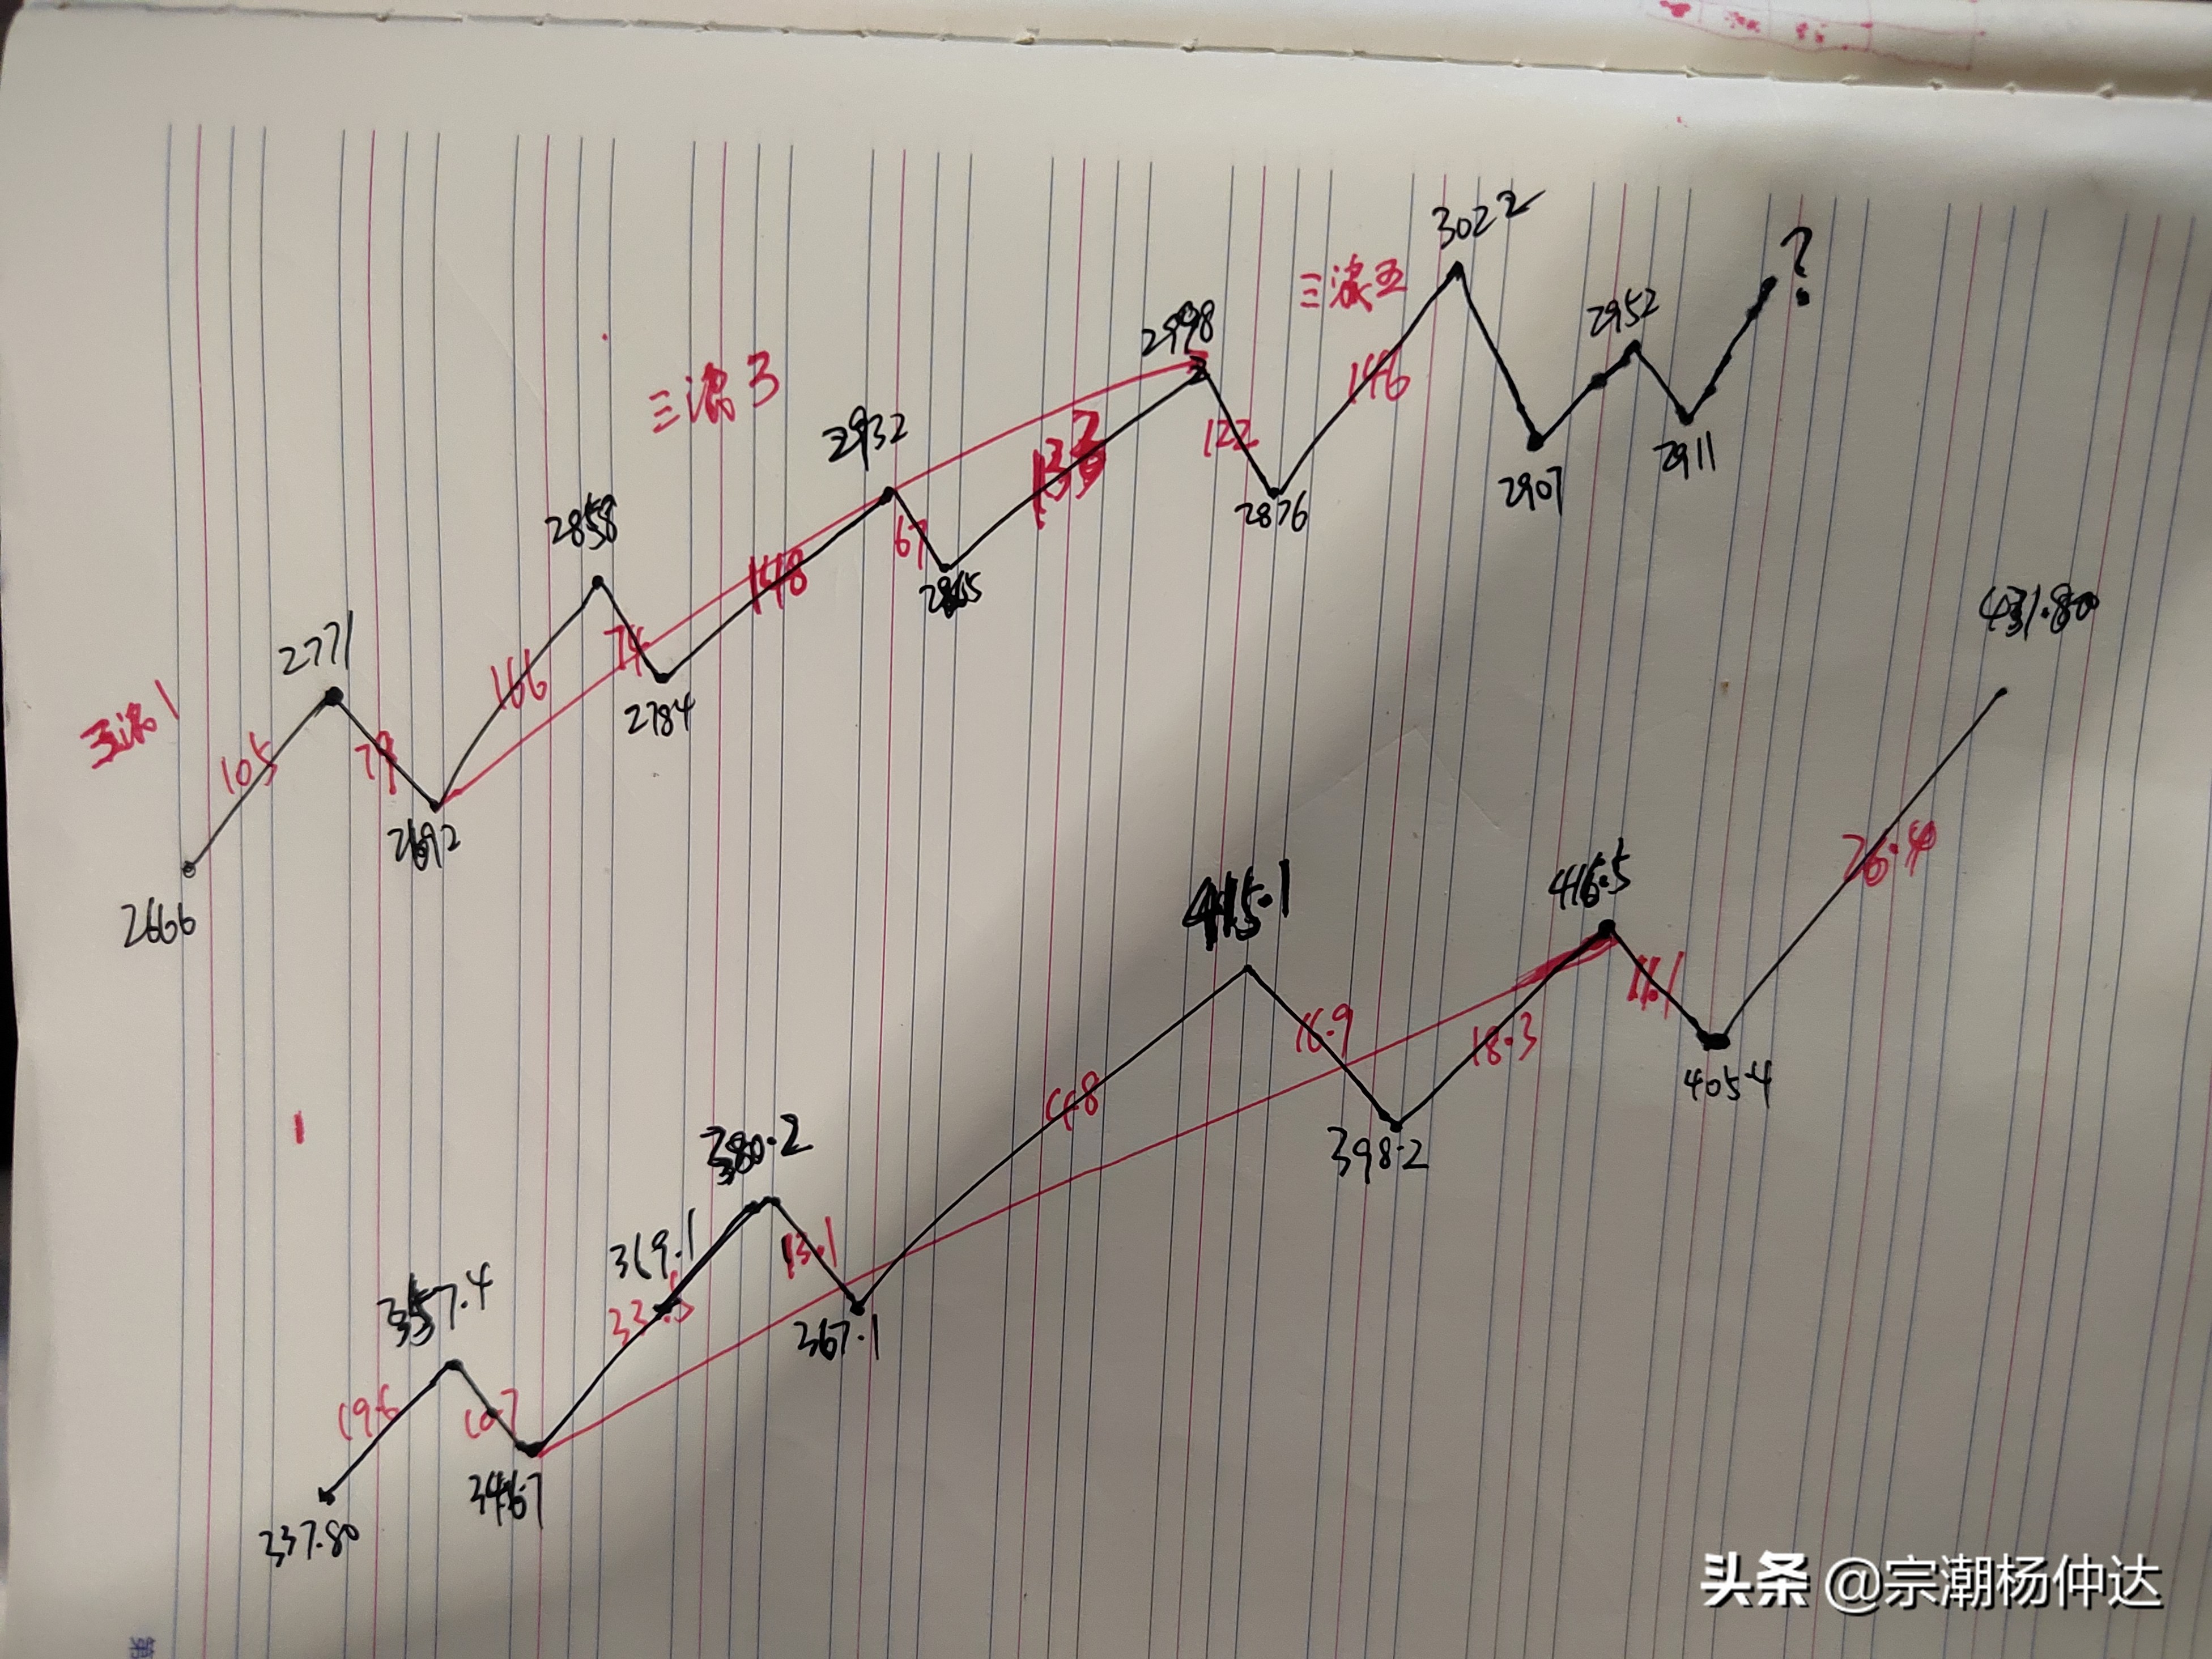 3022
?
三浪五
2952
2998
三浪3
146
2932
122
2911
133
2907
2858
67
2876
148
2865
431.80
2771
74
166
2784
三浪1
105
79
2692
26.4
2666
415.1
416.5
16.9
11.1
18.3
405.4
48
398.2
380.2
369.1
13.1
33.5
367.1
357.4
19.6
10.7
346.7
337.80
头条 @宗潮杨仲达
第